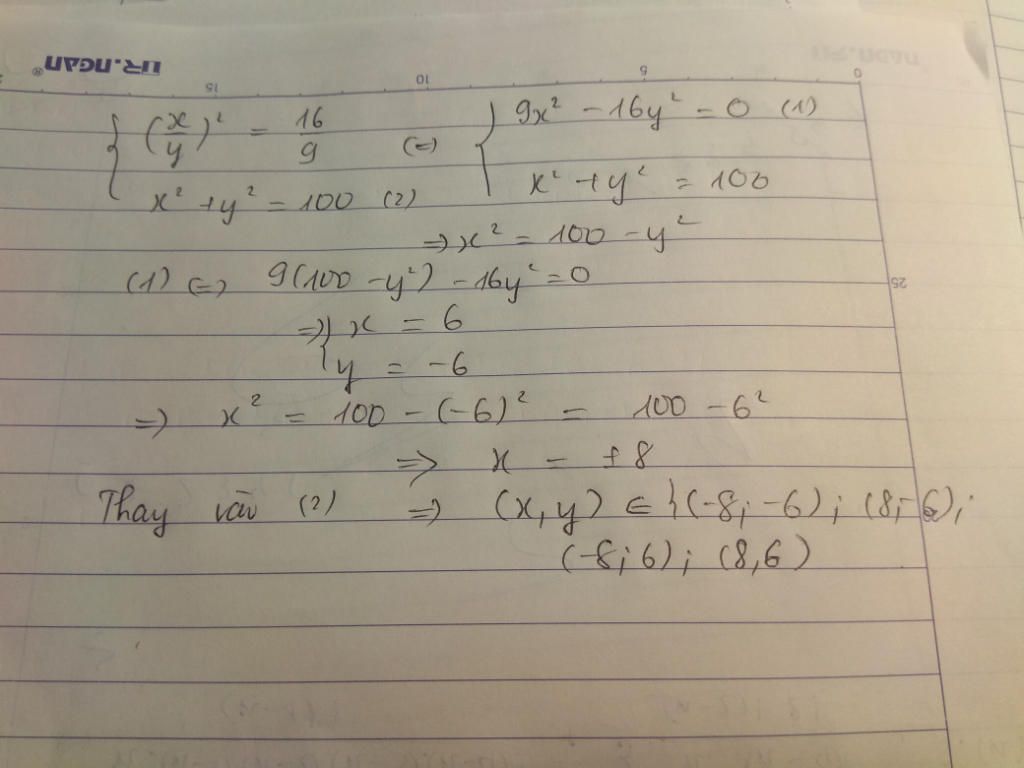 UR.NGAN®
15 10 5 0
{ (x/y)² = 16/9 (=) { 9x² - 16y² = 0 (1)
x² + y² = 100 (2) x² + y² = 100
=> x² = 100 - y²
(1) (=) 9(100 - y²) - 16y² = 0
25
=> { x = 6
y = -6
=> x² = 100 - (-6)² = 100 - 6²
=> x = ±8
Thay vào (2) => (x,y) ∈ {(-8; -6); (8; -6);
(-8; 6); (8,6)